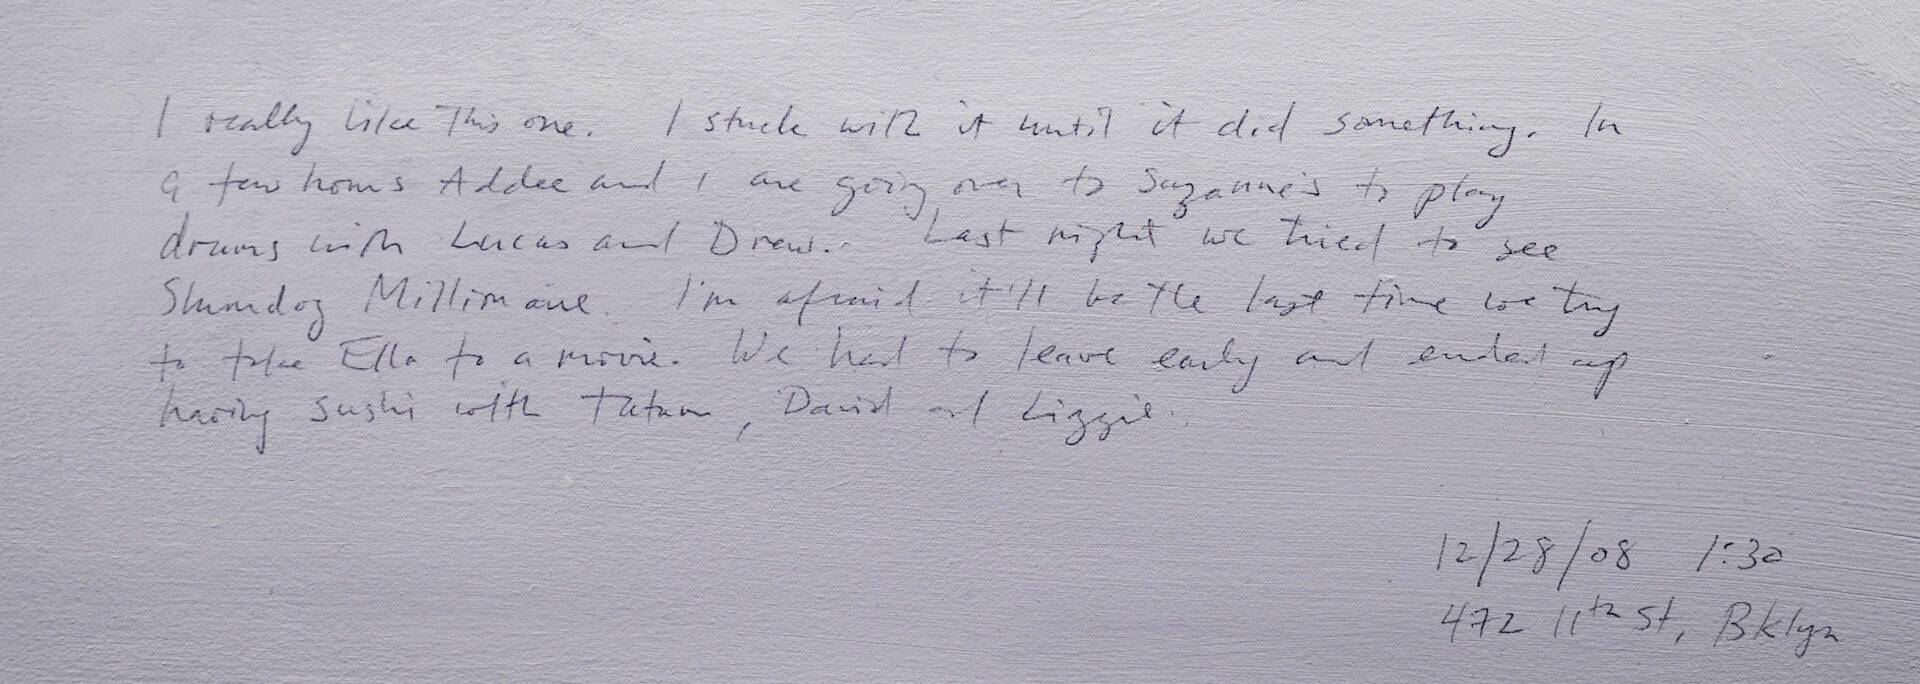 I really like this one. I stuck with it until it did something. In
a few hours Addee and I are going over to Suzanne's to play
drums with Lucas and Drew. Last night we tried to see
Slumdog Millionaire. I'm afraid it'll be the last time we try
to take Ella to a movie. We had to leave early and ended up
having sushi with Tatum, David and Lizzie.
12/28/08 1:30
472 11th St, Bklyn